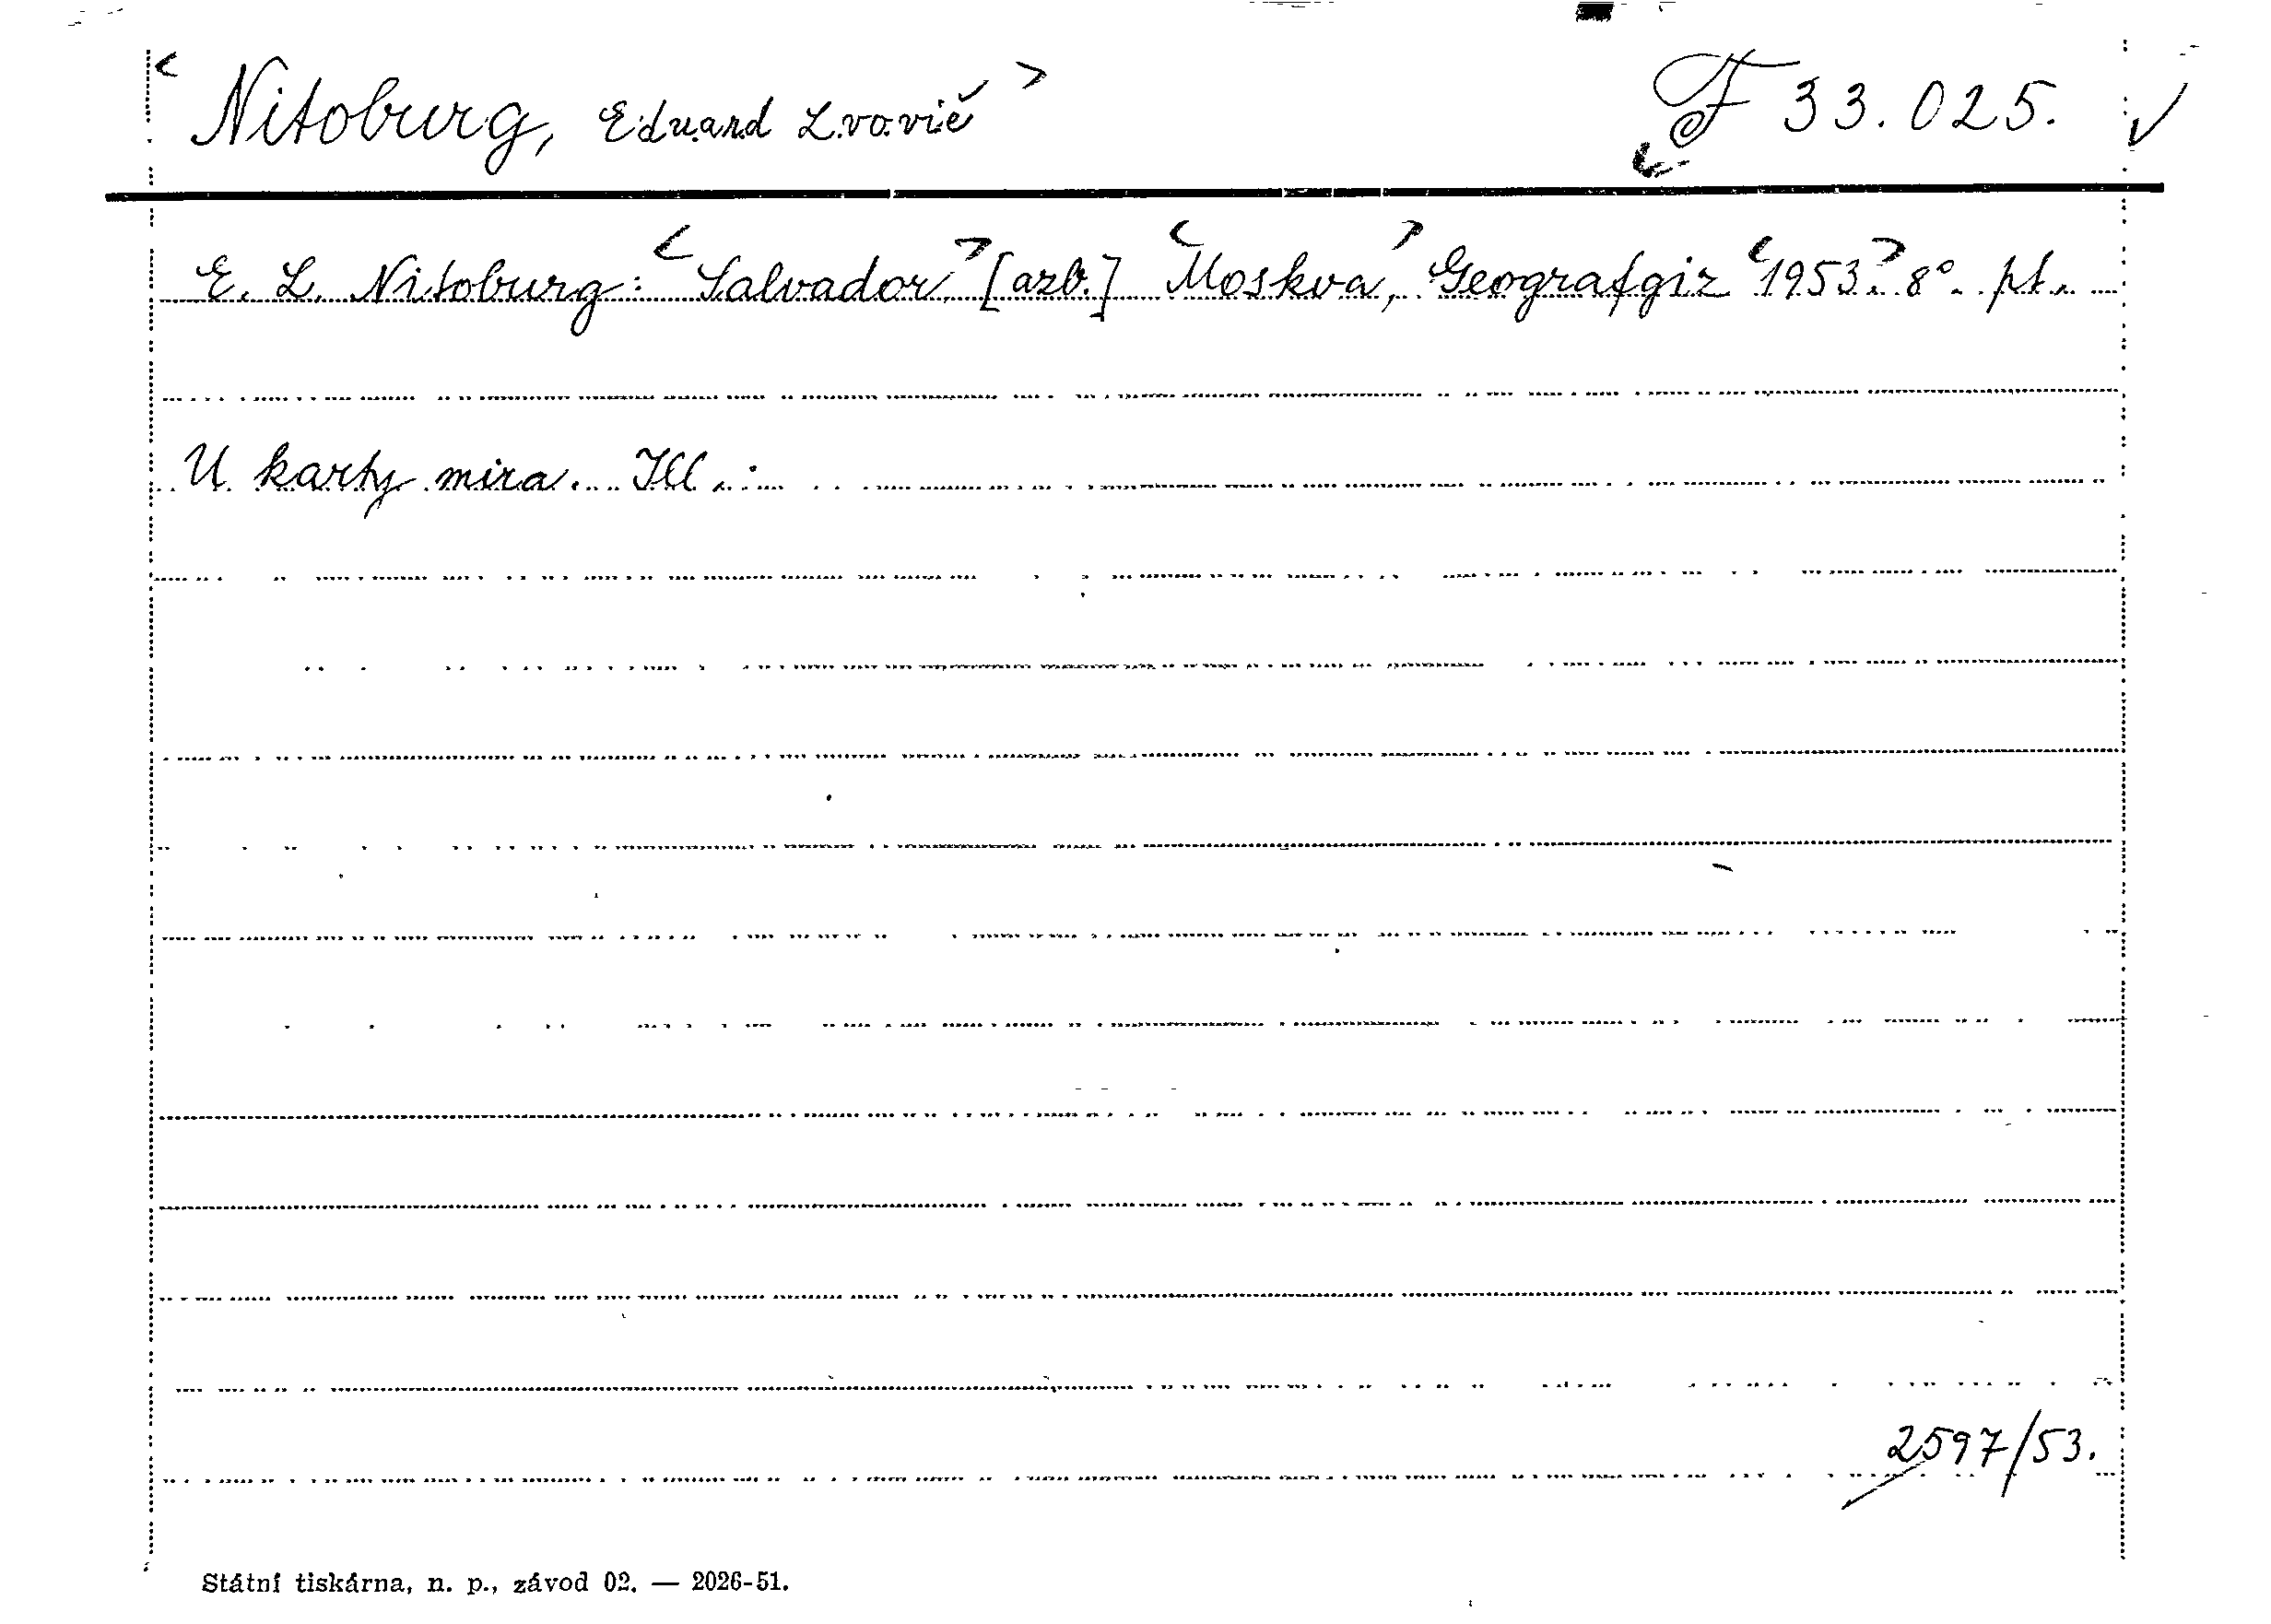 < Nitoburg, Eduard Lvovič > F 33.025. ✓
E. L. Nitoburg: <Salvador> [azb.] <Moskva,> Geografgiz <1953.> 8°. pt.
U karty mira. Ill.:
2597/53.
Státní tiskárna, n. p., závod 02. — 2026-51.